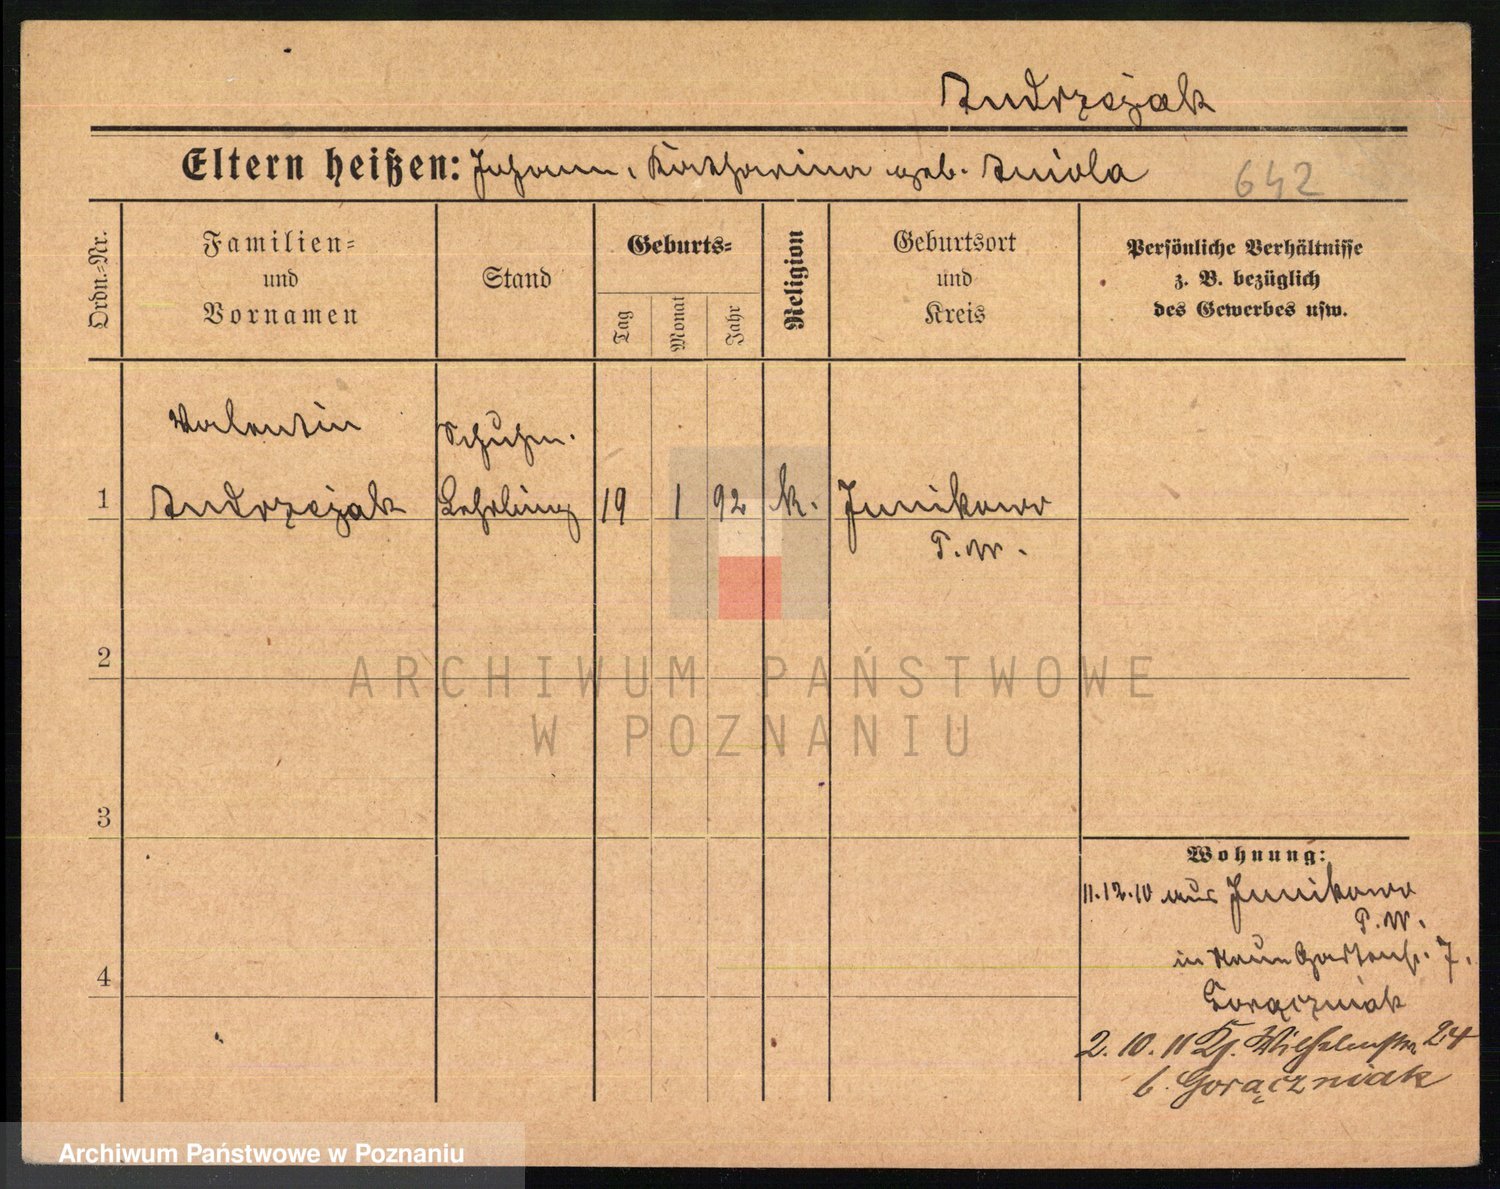 Andrzejak
Eltern heißen: Johann, Katharina geb. Aniola
642
Ordn.-Nr.
Familien-
und
Vornamen
Stand
Geburts-
Tag
Monat
Jahr
Religion
Geburtsort
und
Kreis
Persönliche Verhältnisse
z. B. bezüglich
des Gewerbes usw.
Valentin
Schuhm.
1 Andrzejak Lehrling 19 1 92 k. Junikowo
P. W.
2
ARCHIWUM PAŃSTWOWE
W POZNANIU
3
Wohnung:
11.12.10 aus Junikowo
P. W.
in Neue Gartenstr. 7.
4
Gorączniak
2.10.11 Wilhelmstr. 24
b. Gorączniak
Archiwum Państwowe w Poznaniu